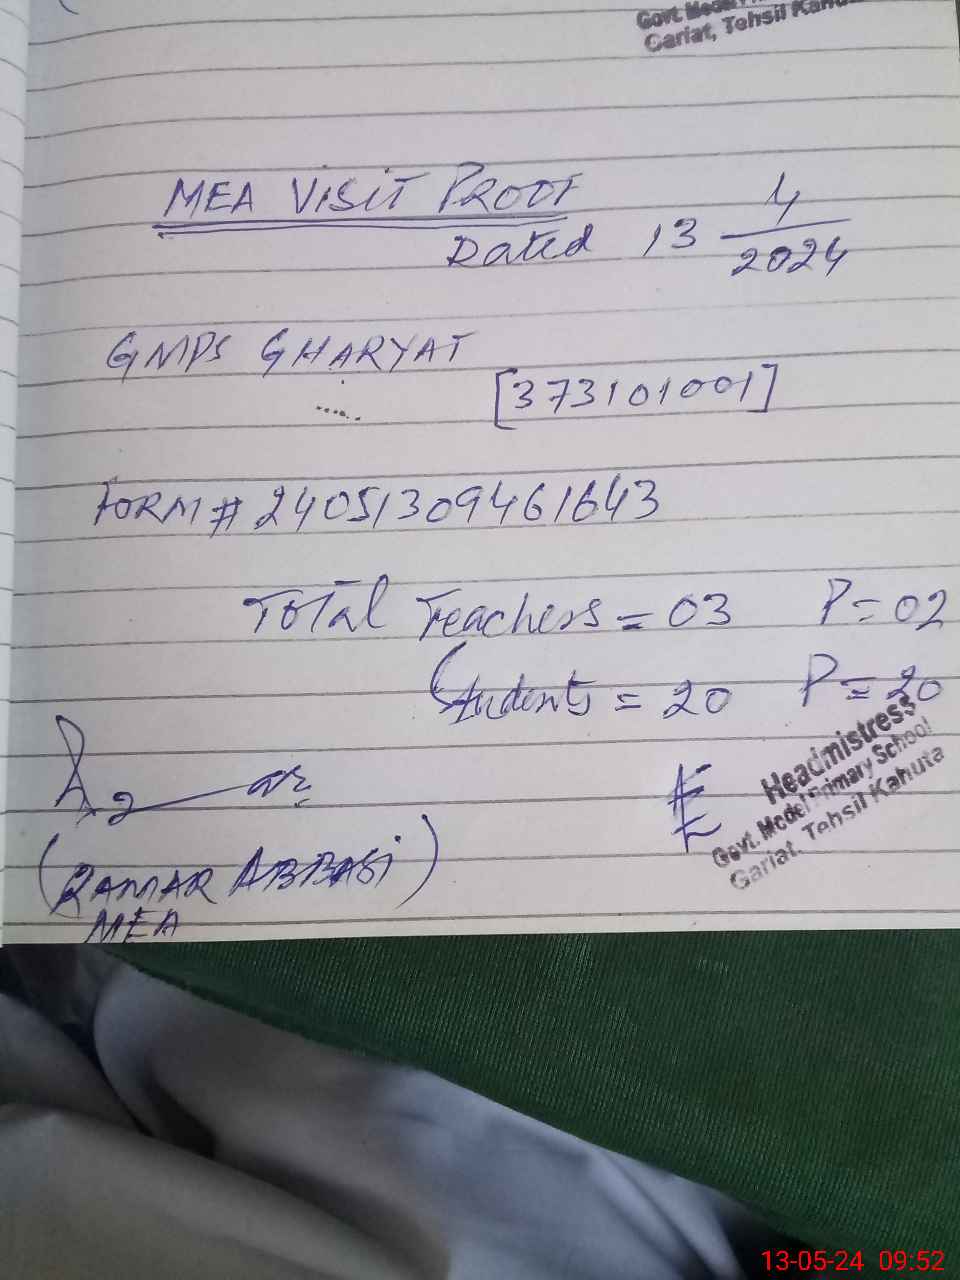 Govt. Model
Gariat, Tehsil Kahu
MEA VISIT PROOF
Dated 13 4/2024
GMPS GHARYAT
[373101001]
FORM # 24051309461643
Total Teachers = 03 P = 02
Students = 20 P = 20
Headmistress
Govt. Model Primary School
Gariat, Tehsil Kahuta
(QAMAR ABBASI)
MEA
13-05-24 09:52